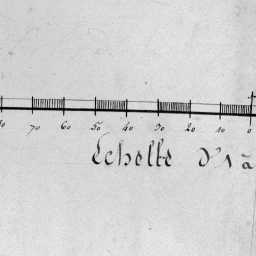 70 60 50 40 30 20 10 0
Echelle D'1 à